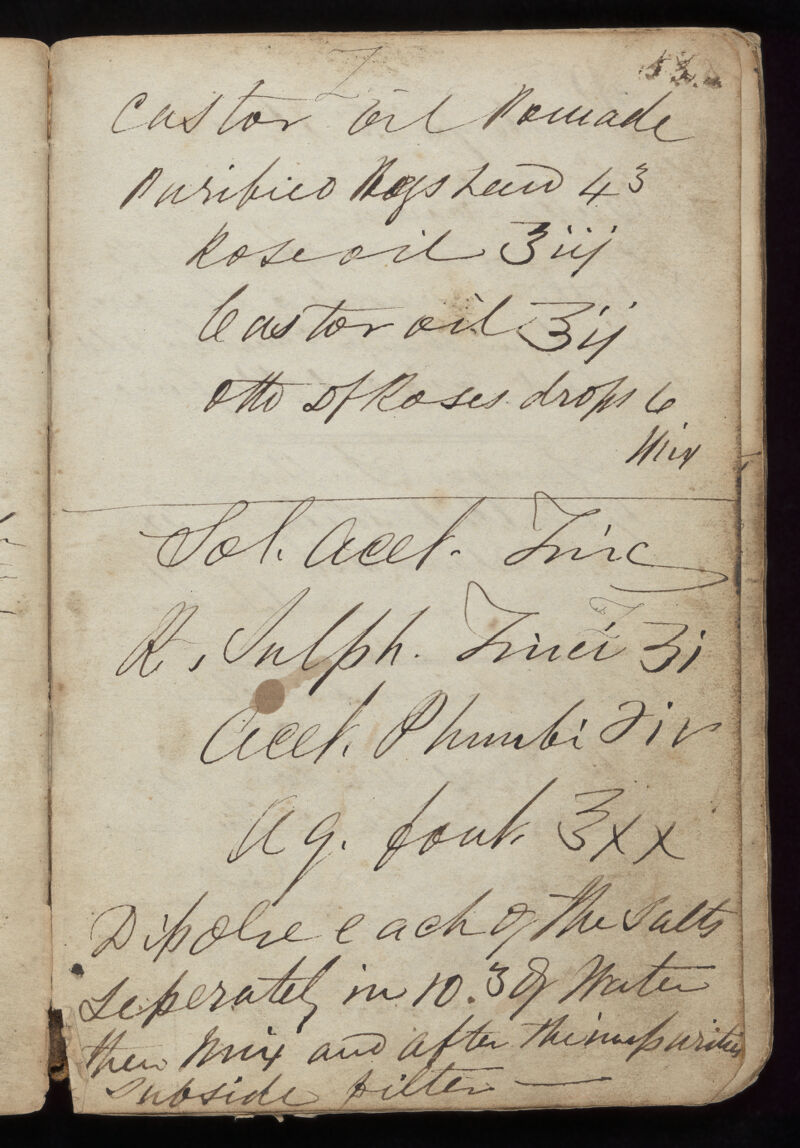 53.
Castor Oil Pomade
Purified Hogs Lard 4 ℥
Rose oil ℥iij
Castor oil ℥ij
Otto of Roses drops 6
Mix
Sol. Acet. Zinc
℞, Sulph. Zinci ʒi
Acet. Plumbi ʒiv
Aq. font. ℥xx
Dissolve each of the Salts
seperately in 10.℥ of Water
then Mix and after the impurities
subside filter —